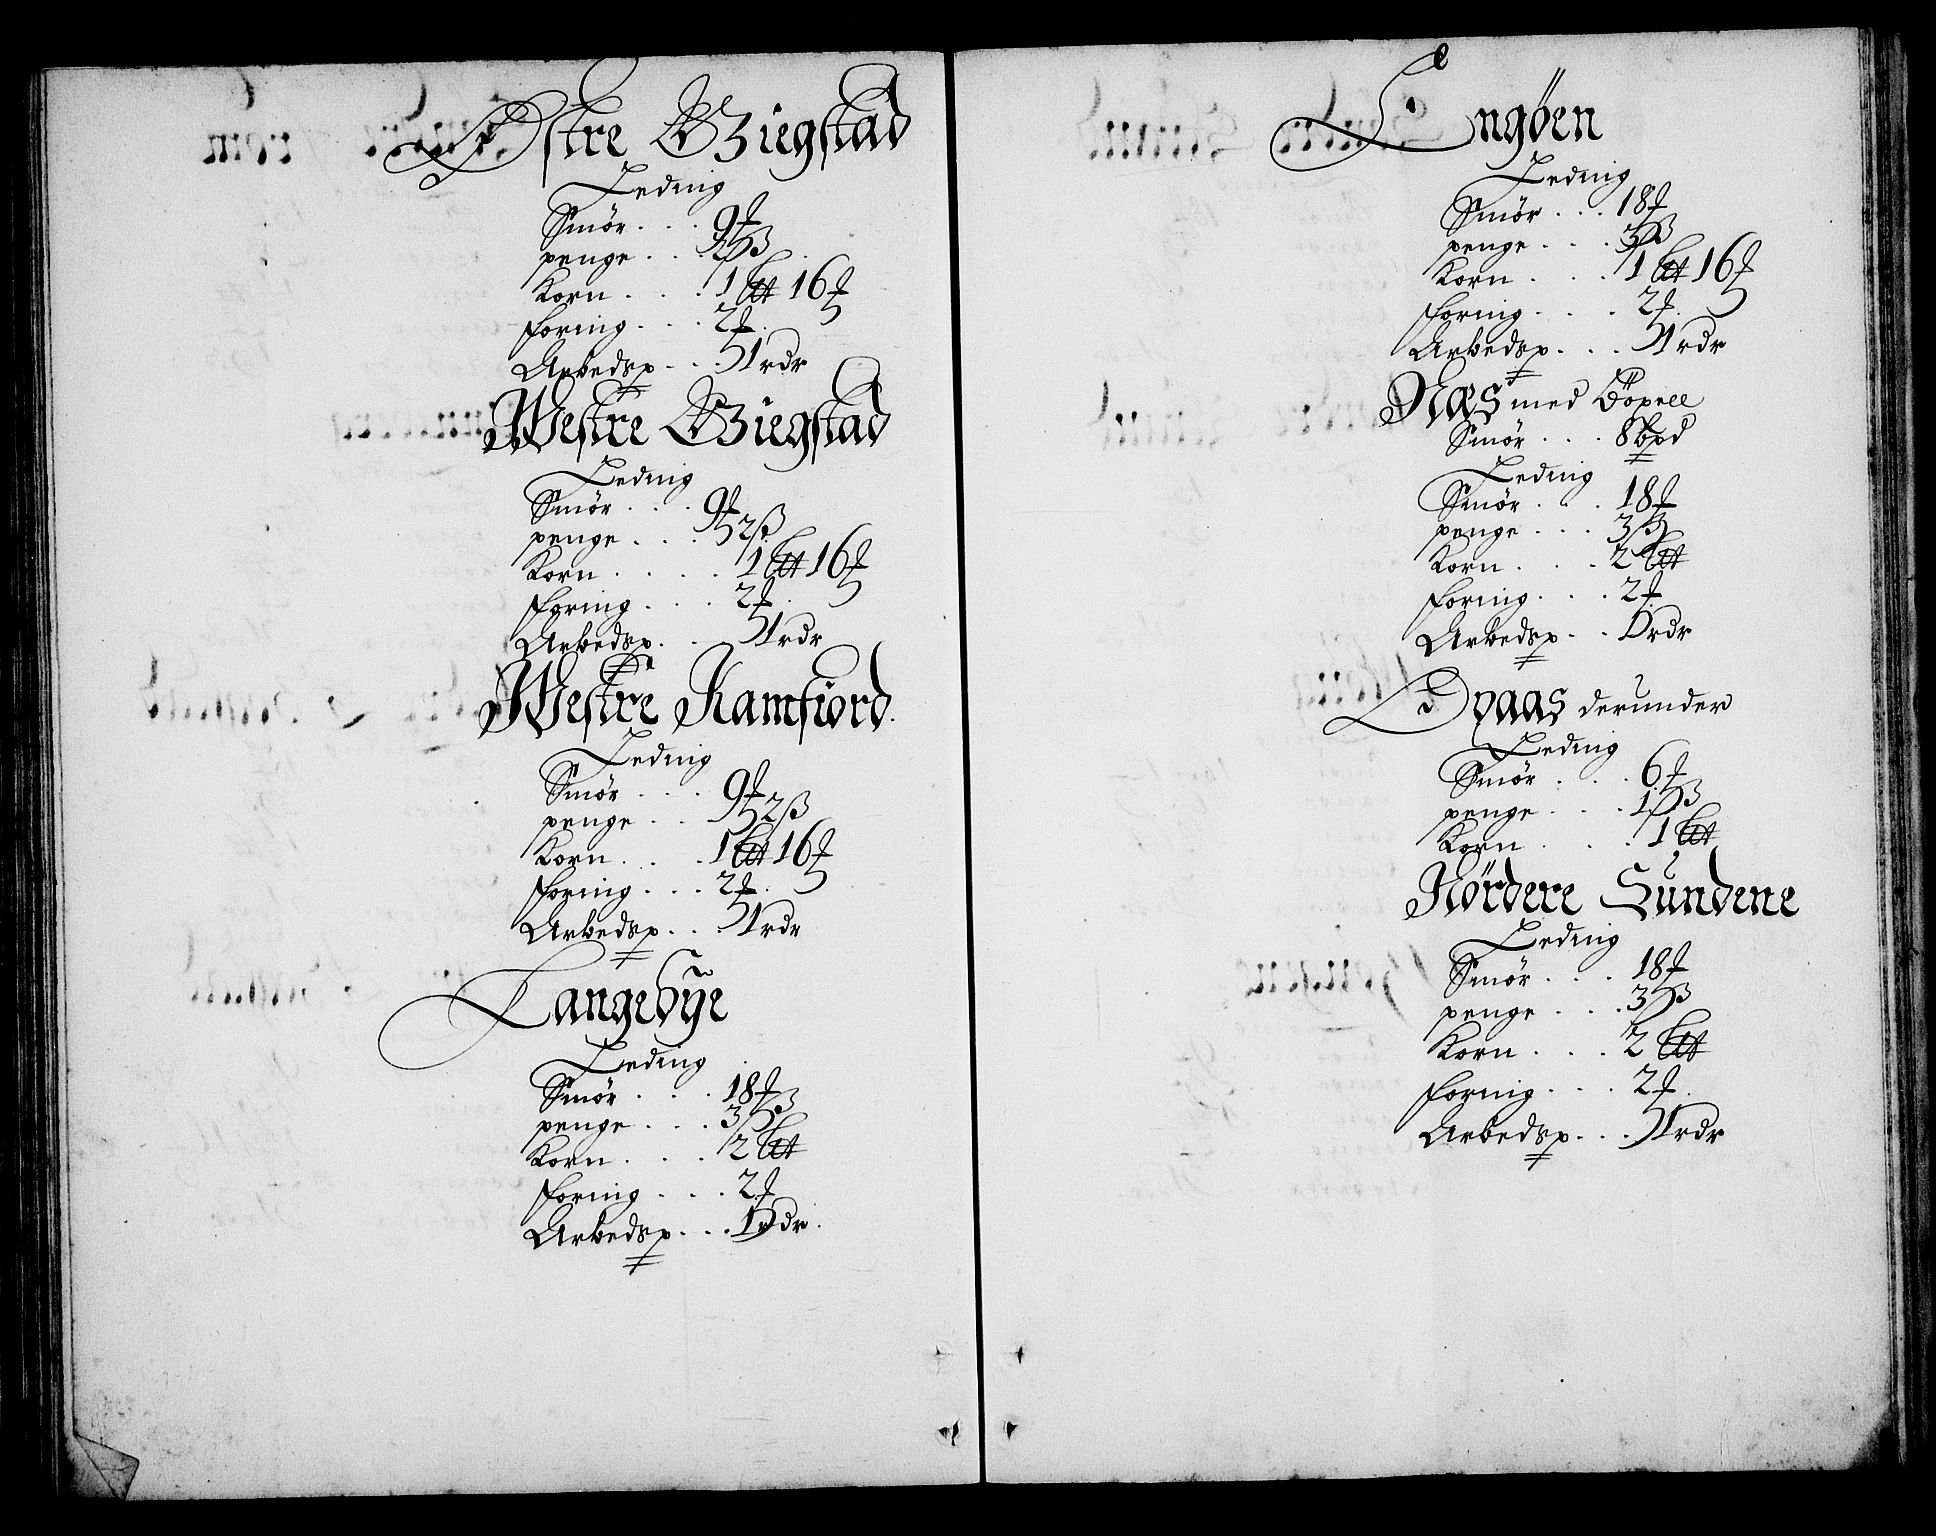 Østre Giegstad
Leding
Smör . . . 9 ₰
penge . . . 2 ß
Korn . . . . 1 L℔ 16 ₰
foring . . . 2 ₰
Arbedsp . . . 1 rdr
Westre Giegstad
Leding
Smör . . . 9 ₰
penge . . . 2 ß
Korn . . . . . 1 L℔ 16 ₰
foring . . . 2 ₰
Arbedsp . . 1 rdr
Westre Kamfiord
Leding
Smör . . . 9 ₰
penge . . . 2 ß
Korn . . . . 1 L℔ 16 ₰
foring . . . 2 ₰
Arbedsp . . . 1 rdr
Langebÿe
Leding
Smör . . . 18 ₰
penge . . . 3 ß
Korn . . . . 2 L℔
foring . . . 2 ₰
Arbedsp . . . 1 rdr
Engøen
Leding
Smör . . . 18 ₰
penge . . . 3 ß
Korn . . . . 1 L℔ 16 ₰
foring . . . . 2 ₰
Arbedsp . . . 1 rdr
Næs med
Smör . . . 8 bpd
Leding
Smör . . . 18 ₰
penge . . . 3 ß
Korn . . . . 2 L℔
foring . . . 2 ₰
Arbedsp . . 1 rdr
derunder
Leding
Smör . . . 6 ₰
penge . . . . 1 ß
Korn . . . . 1 L℔
Nördere Sundene
Leding
Smör . . . . 18 ₰
penge . . . . 3 ß
Korn . . . . 2 L℔
foring . . . 2 ₰
Arbedsp . . . 1 rdr